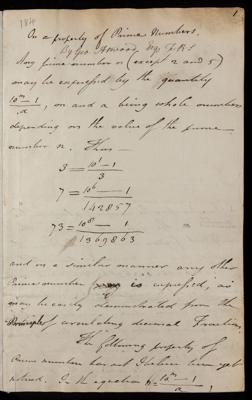 184
1
On a property of Prime Numbers.
By Geo. Atwood Esq. F.R.S
Any prime number n (except 2 and 5)
may be expressed by the quantity
10^m − 1 / a, m and a being whole numbers
depending on the value of the prime
number n. Thus —
3 = 10^1 − 1 / 3
7 = 10^6 — 1 / 142857
73 = 10^8 — 1 / 1369863
and in a similar manner any other
Prime number is expressed, as
may be easily demonstrated from the
Principles of circulating decimal Fractions.
The following property of
Prime numbers has not I believe been yet
noticed. In the equation n = 10^m − 1 / a,